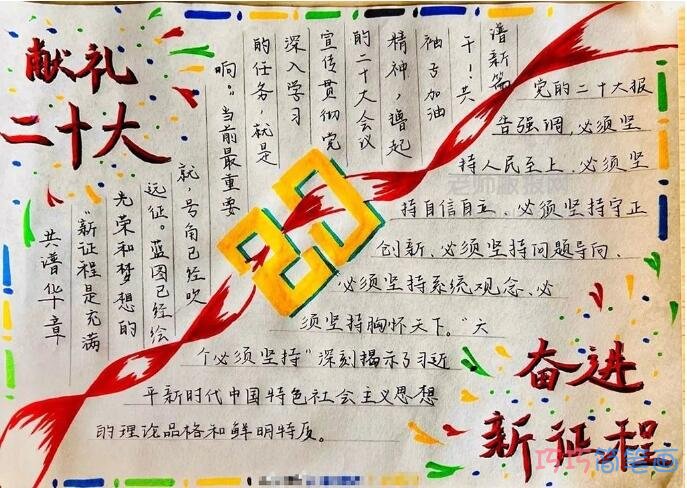 献礼
二十大
共谱华章
"新征程是充满
光荣和梦想的
远征。蓝图已经绘
就,号角已经吹
响。当前最重要
的任务,就是
深入学习
宣传贯彻党
的二十大会议
精神,撸起
袖子加油
干!共
谱新篇
20
党的二十大报
告强调,必须坚
持人民至上、必须坚
持自信自立、必须坚持守正
创新、必须坚持问题导向、
必须坚持系统观念、必
须坚持胸怀天下。"六
个必须坚持"深刻揭示了习近
平新时代中国特色社会主义思想
的理论品格和鲜明特质。
奋进
新征程
巧巧简笔画